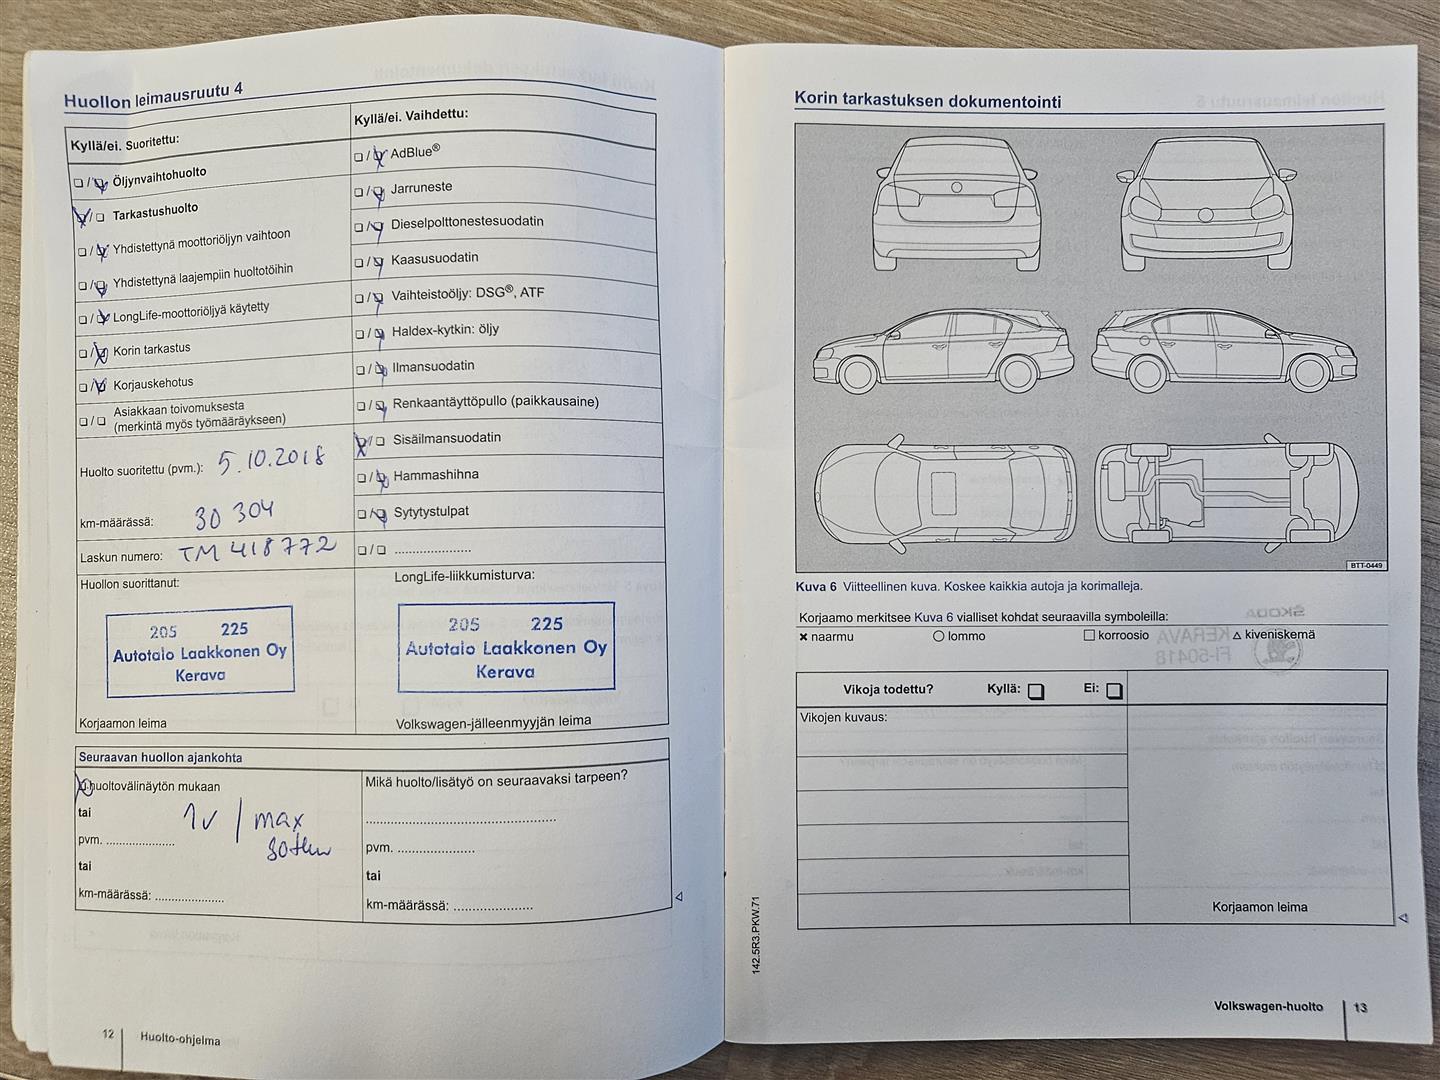 Huollon leimausruutu 4
Kyllä/ei. Suoritettu:
☐ / ☒ Öljynvaihtohuolto
☒ / ☐ Tarkastushuolto
☐ / ☒ Yhdistettynä moottoriöljyn vaihtoon
☐ / ☒ Yhdistettynä laajempiin huoltotöihin
☐ / ☒ LongLife-moottoriöljyä käytetty
☐ / ☒ Korin tarkastus
☐ / ☒ Korjauskehotus
☐ / ☐ Asiakkaan toivomuksesta
(merkintä myös työmääräykseen)
Huolto suoritettu (pvm.): 5.10.2018
km-määrässä: 30 304
Laskun numero: TM 418772
Kyllä/ei. Vaihdettu:
☐ / ☒ AdBlue®
☐ / ☒ Jarruneste
☐ / ☒ Dieselpolttonestesuodatin
☐ / ☒ Kaasusuodatin
☐ / ☒ Vaihteistoöljy: DSG®, ATF
☐ / ☒ Haldex-kytkin: öljy
☐ / ☒ Ilmansuodatin
☐ / ☒ Renkaantäyttöpullo (paikkausaine)
☒ / ☐ Sisäilmansuodatin
☐ / ☒ Hammashihna
☐ / ☒ Sytytystulpat
☐ / ☐ ......................
Huollon suorittanut:
205 225
Autotalo Laakkonen Oy
Kerava
Korjaamon leima
LongLife-liikkumisturva:
205 225
Autotalo Laakkonen Oy
Kerava
Volkswagen-jälleenmyyjän leima
Seuraavan huollon ajankohta
☒ huoltovälinäytön mukaan
tai
1v / max
pvm. ....................
30tkm
tai
km-määrässä: ....................
Mikä huolto/lisätyö on seuraavaksi tarpeen?
......................................................
pvm. ......................
tai
km-määrässä: ......................
12 Huolto-ohjelma
Korin tarkastuksen dokumentointi
BTT-0449
Kuva 6 Viitteellinen kuva. Koskee kaikkia autoja ja korimalleja.
Korjaamo merkitsee Kuva 6 vialliset kohdat seuraavilla symboleilla:
✖ naarmu ○ lommo □ korroosio △ kiveniskemä
ŠKODA
KERAVA
FI-50418
Vikoja todettu? Kyllä: ☐ Ei: ☐
Vikojen kuvaus:
Korjaamon leima
142.5R3.PKW.71
Volkswagen-huolto 13